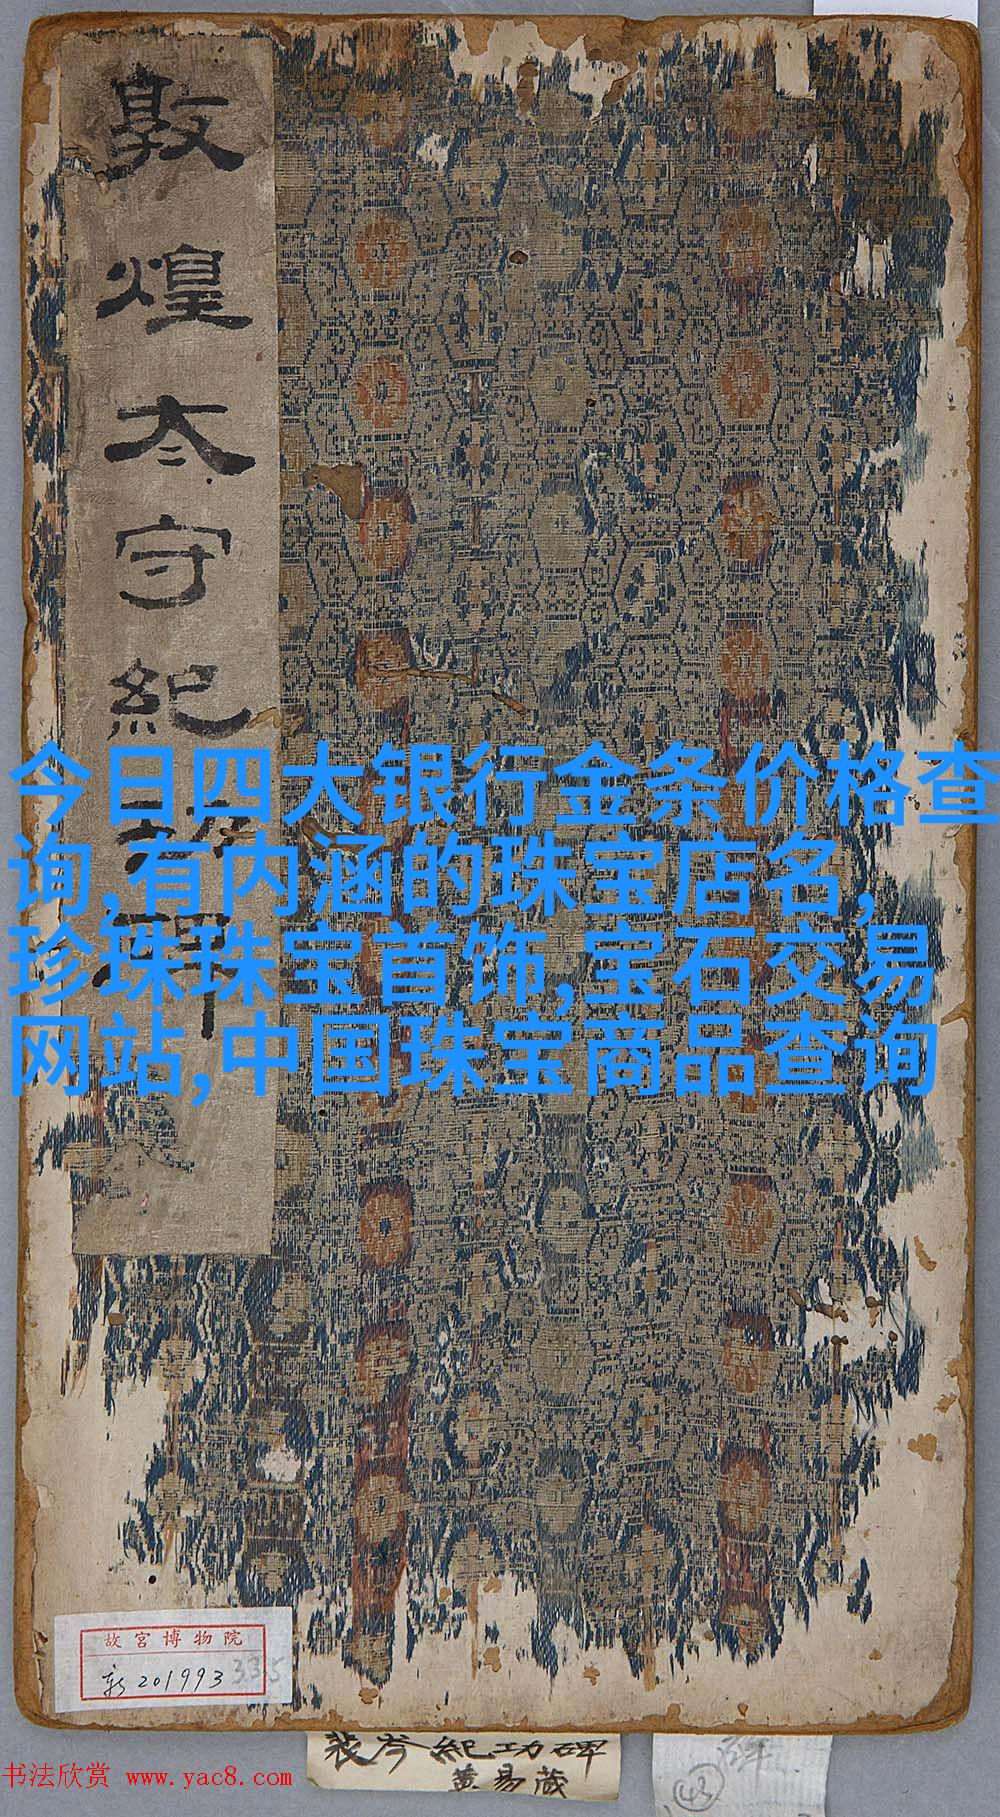 敦煌太守紀功碑
今日四大银行金条价格查
询,有内涵的珠宝店名,
珍珠珠宝首饰,宝石交易
网站,中国珠宝商品查询
故宫博物院
新201993
335
裴岑紀功碑
黄易藏
43
书法欣赏 www.yac8.com